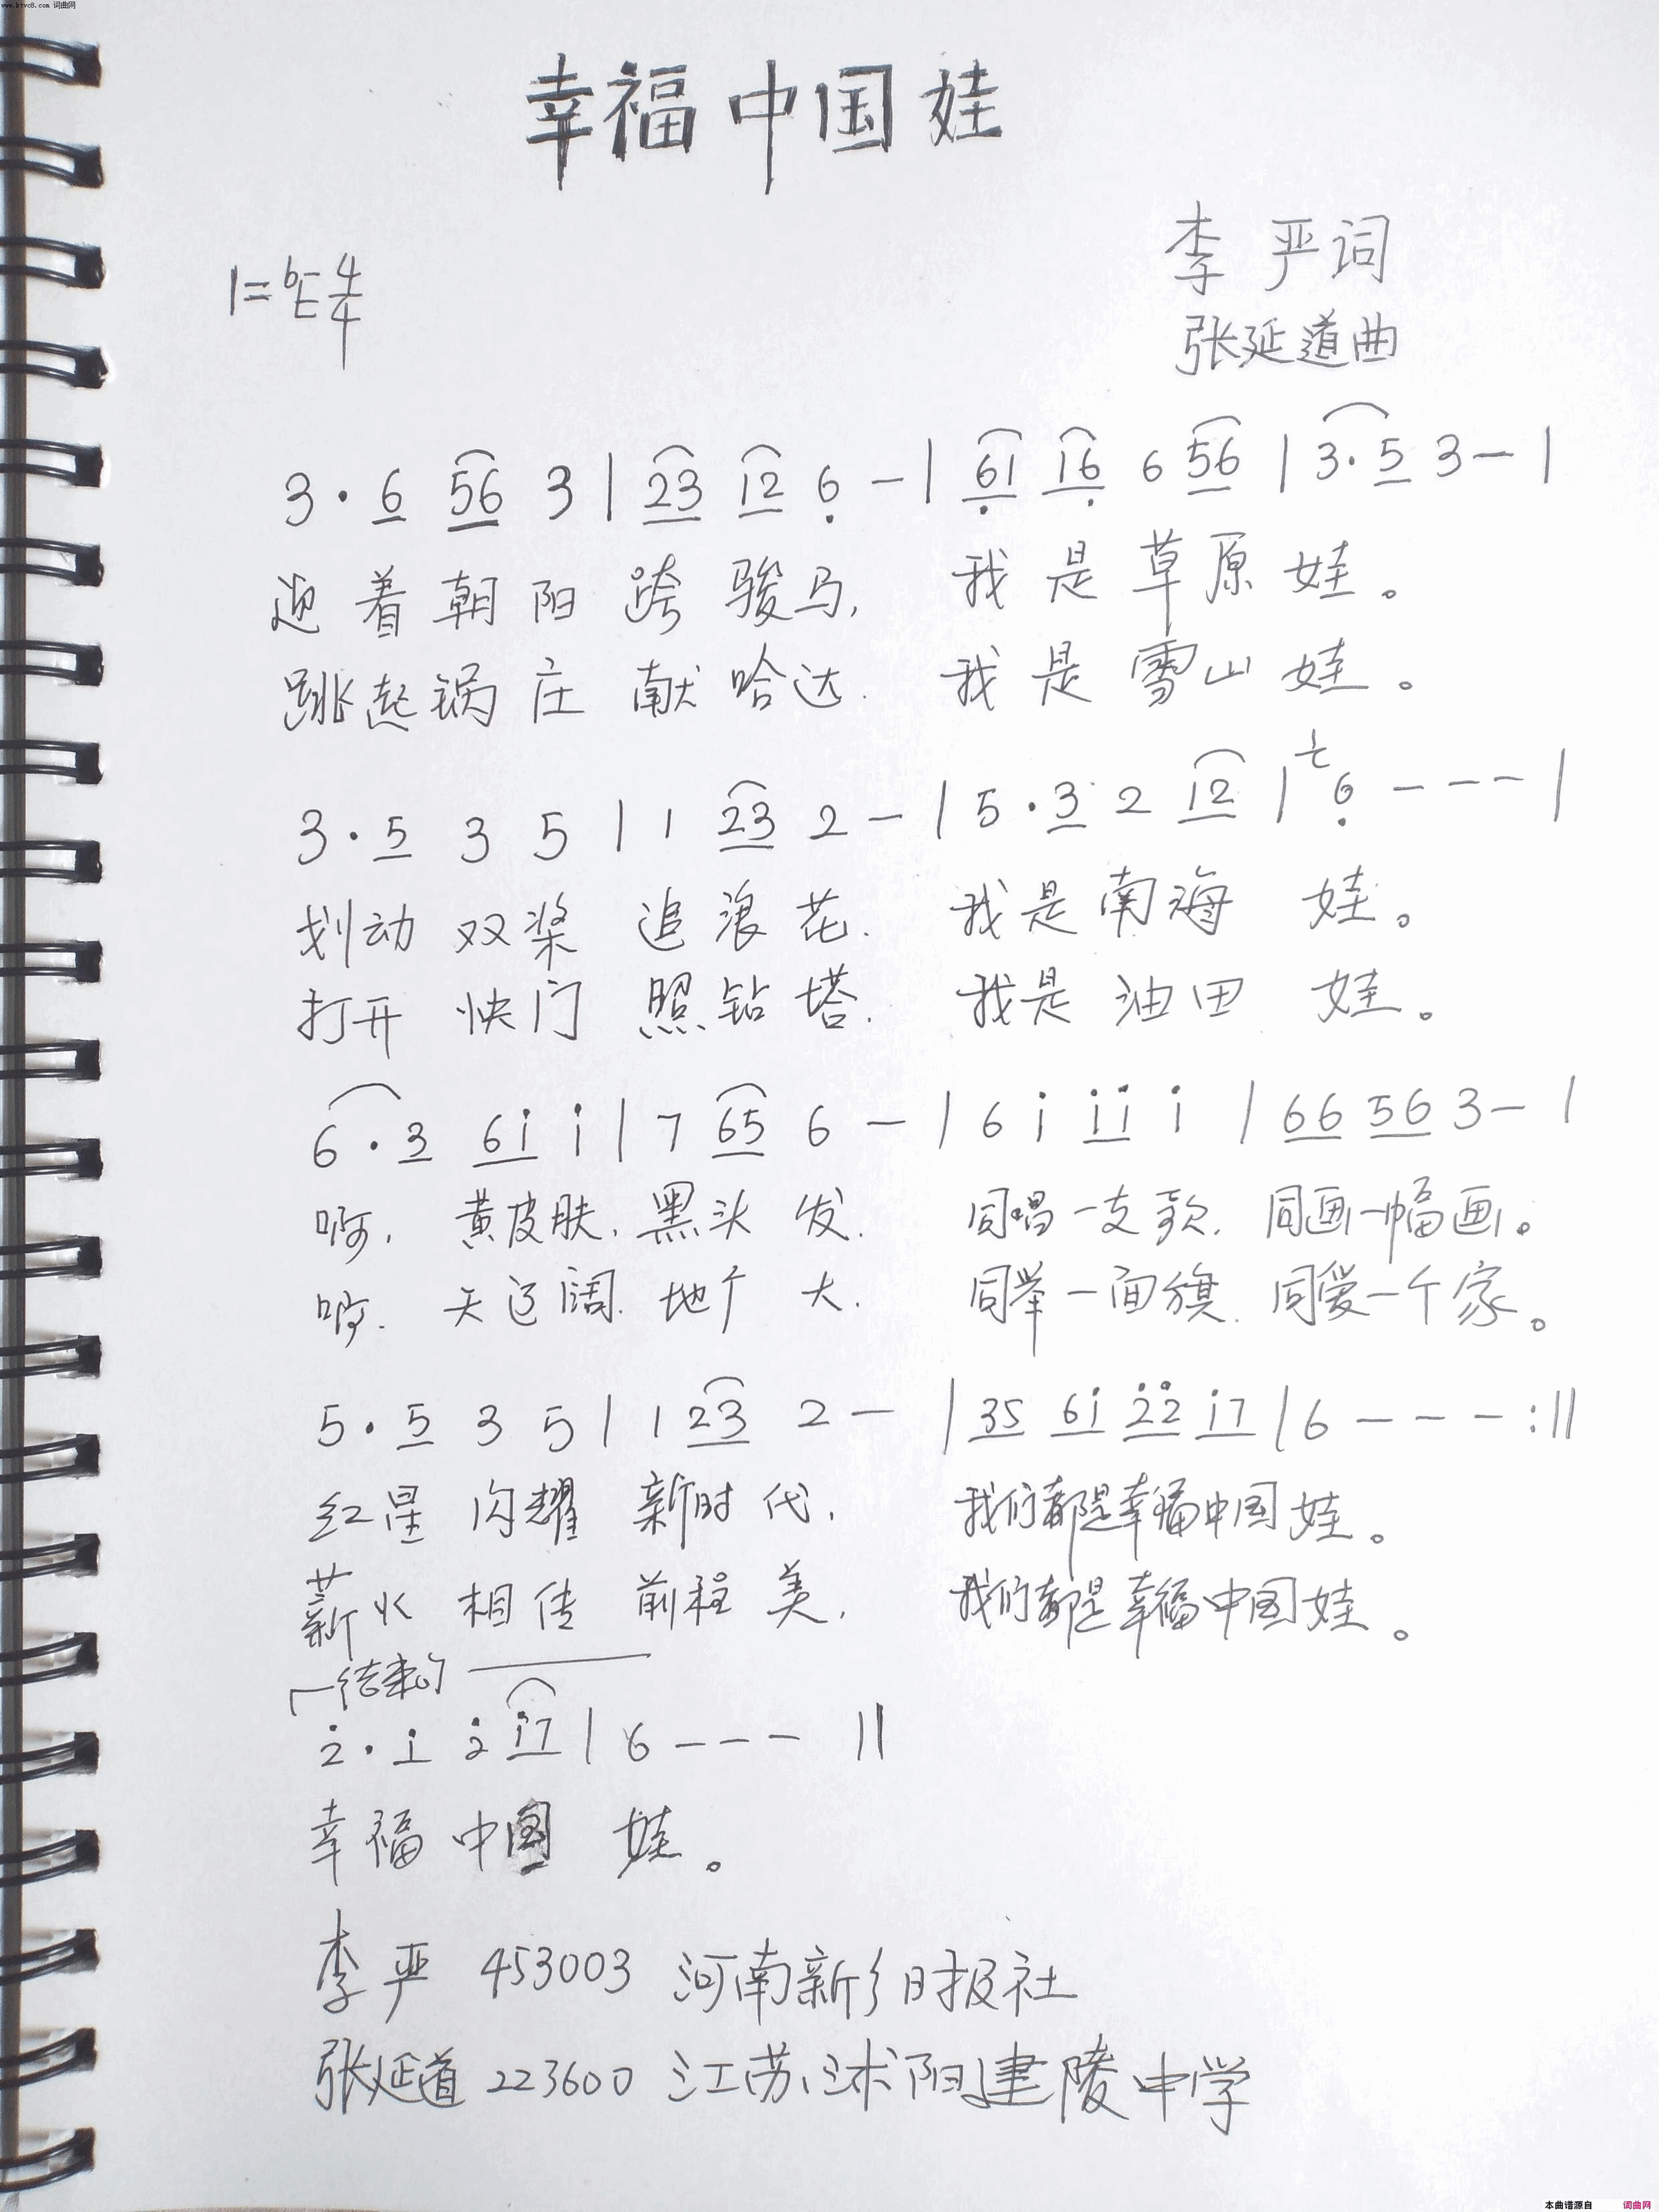 www.ktvc8.com 词曲网
幸福中国娃
李严词
1=♭E 4/4
张延道曲
3· 6 56 3 | 23 12 6̣ - | 6̣1 16̣ 6 56 | 3· 5 3 - |
迎着朝阳跨骏马, 我是草原娃。
跳起锅庄献哈达. 我是雪山娃。
3· 5 3 5 | 1 23 2 - | 5· 3 2 12 | 6̣ - - - |
划动双桨追浪花. 我是南海娃。
打开快门照钻塔. 我是油田娃。
6· 3 6i i | 7 65 6 - | 6 i ii i | 66 56 3 - |
啊, 黄皮肤, 黑头发. 同唱一支歌, 同画一幅画。
啊. 天辽阔. 地广大. 同举一面旗. 同爱一个家。
5· 5 3 5 | 1 23 2 - | 35 6i 2̇2̇ i7 | 6 - - - :||
红星闪耀新时代, 我们都是幸福中国娃。
薪火相传前程美, 我们都是幸福中国娃。
结束句
2̇· i 2̇ i7 | 6 - - - ||
幸福中国娃。
李严 453003 河南新乡日报社
张延道 223600 江苏沭阳建陵中学
本曲谱源自 词曲网